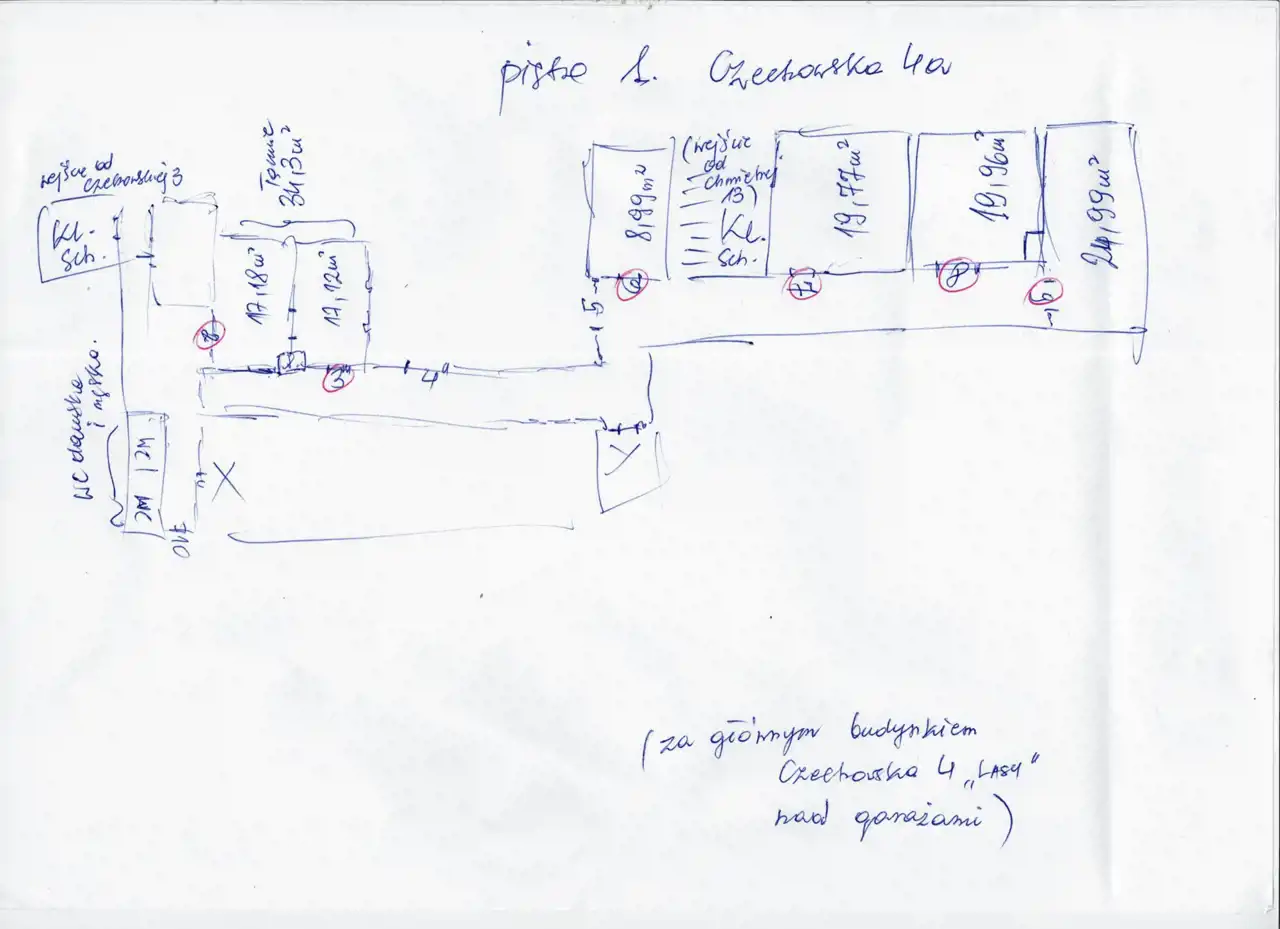 piętro 1. Czechowska 4a
wejście od
Czechowskiej 3
Kl.
Sch.
Łącznie
34,3m²
17,18m²
17,12m²
8,99m²
(wejście
od
Chmielnej
13)
Kl.
Sch.
19,77m²
19,96m²
24,99m²
8
3
4
5
6
7
8
9
WC damska
i męska.
X
Y
(za głównym budynkiem
Czechowska 4 „LASY"
nad garażami)